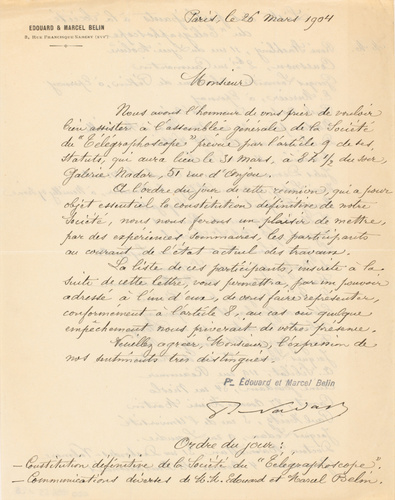 EDOUARD & MARCEL BELIN
5, Rue Francisque-Sarcey (XVIe)
Paris, le 26 Mars 1904
Monsieur
Nous avons l'honneur de vous prier de vouloir
bien assister à l'assemblée générale de la Société
du "Télégraphoscope" prévue par l'article 9 de ses
Statuts, qui aura lieu le 31 Mars, à 8h ½ du soir,
Galerie Nadar, 51 rue d'Anjou.
A l'ordre du jour de cette réunion, qui a pour
objet essentiel la constitution définitive de notre
Société, nous nous ferons un plaisir de mettre,
par des expériences sommaires, les participants
au courant de l'état actuel des travaux.
La liste de ces participants, inscrite à la
suite de cette lettre, vous permettra, par un pouvoir
adressé à l'un d'eux, de vous faire représenter,
conformément à l'article 8, au cas où quelque
empêchement nous priverait de votre présence.
Veuillez agréer, Monsieur, l'expression de
nos sentiments très distingués.
Pn Edouard et Marcel Belin
P. Nadar
Ordre du jour:
— Constitution définitive de la Société du "Télégraphoscope".
— Communications diverses de M.M. Edouard et Marcel Belin.